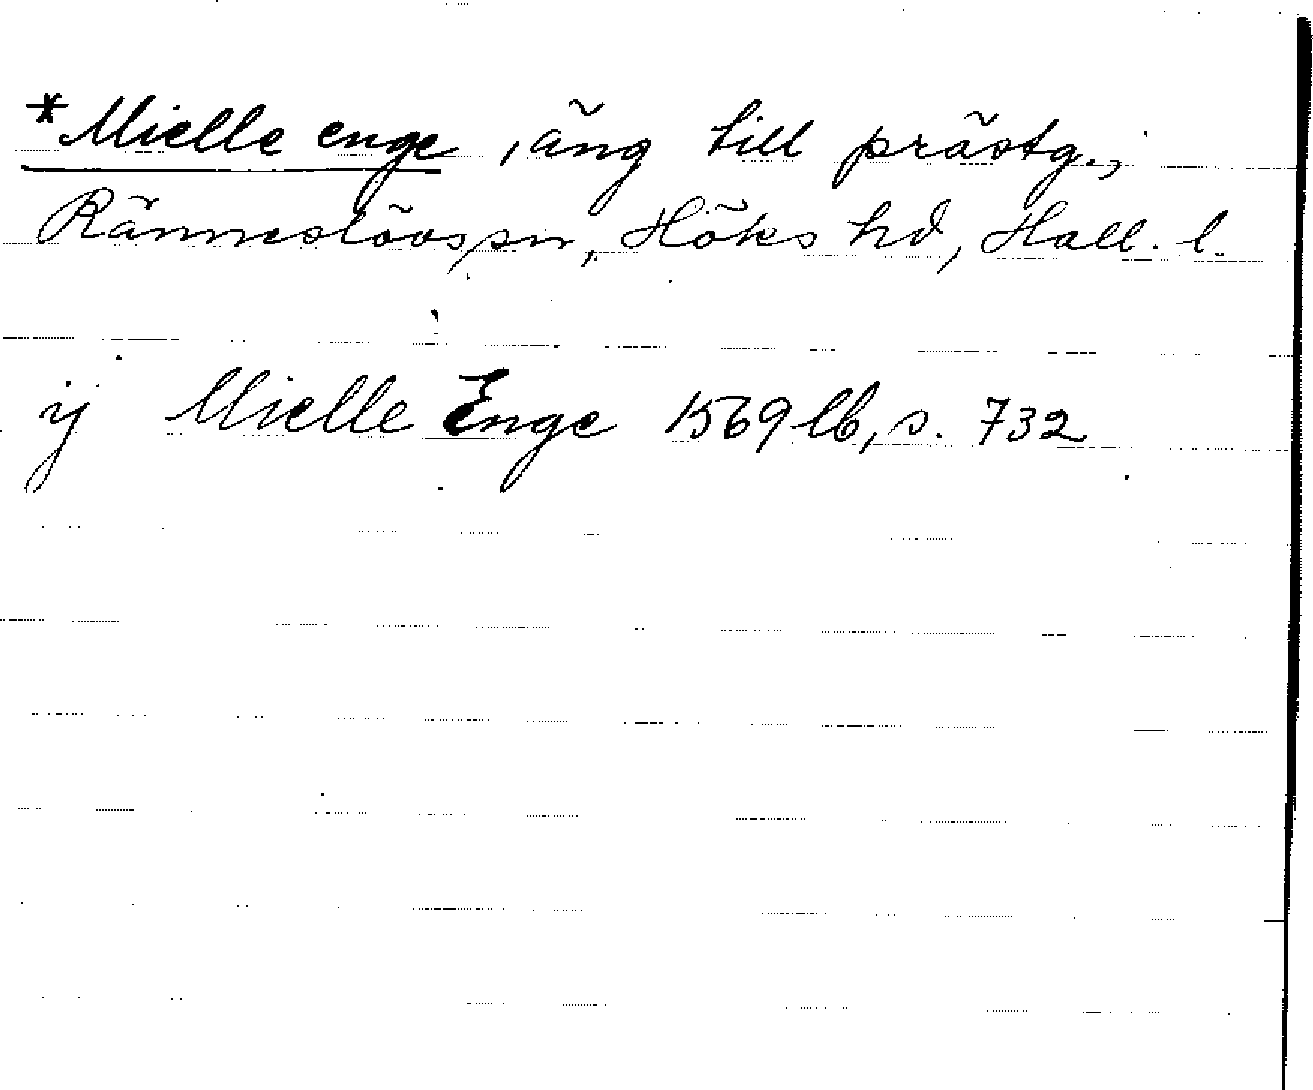 *Mielle enge, äng till prästg.,
Ränneslövs sn, Höks hd, Hall. l.
ij Mielle Enge 1569 lb, s. 732